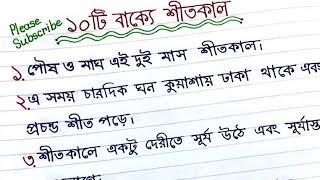 Please
Subscribe
১০টি বাক্যে শীতকাল
১. পৌষ ও মাঘ এই দুই মাস শীতকাল।
২. এ সময় চারদিক ঘন কুয়াশায় ঢাকা থাকে এবং
প্রচন্ড শীত পড়ে।
৩. শীতকালে একটু দেরীতে সূর্য উঠে এবং সূর্যাস্ত